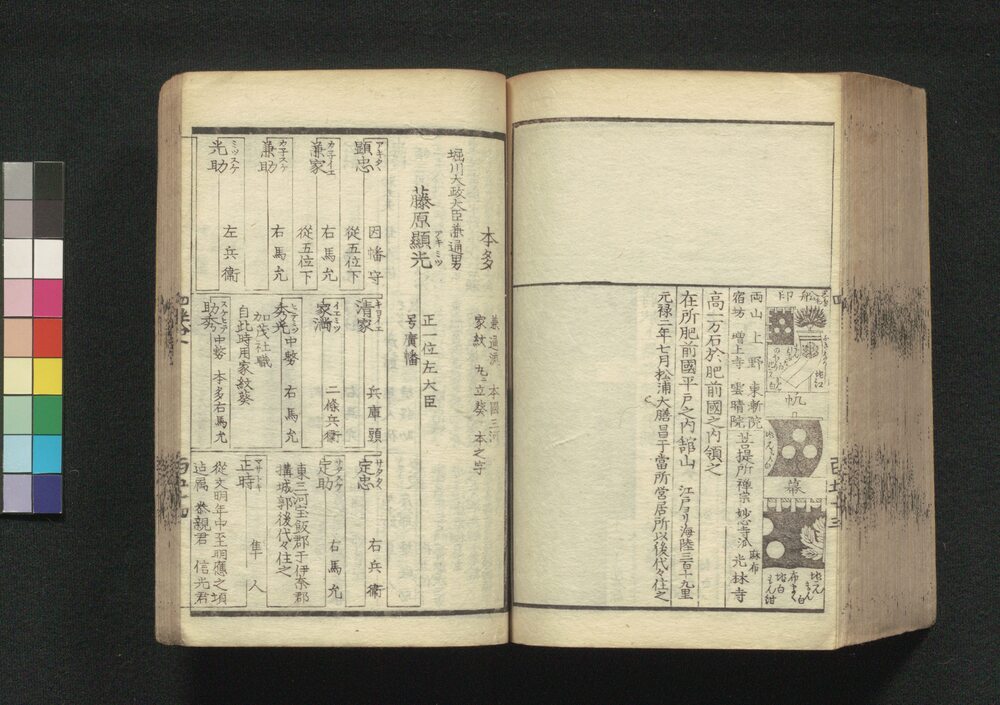 船印
帆
幕
両山 上野 東漸院
宿坊 増上寺 雲晴院
菩提所 禅宗 妙心寺派 麻布 光林寺
高一万石於肥前國之内領之
在所肥前國平戸之内舘山 江戸ヨリ海陸三百十九里
元禄二年七月松浦大膳昌于當所営居所以後代々住之
本多
兼通流 本國三河
家紋 丸ニ立葵 本之字
堀川大政大臣兼通男
藤原顯光
アキミツ
正一位左大臣
号廣幡
顕忠
アキタヽ
因幡守
従五位下
兼家
カネイエ
右馬允
従五位下
兼助
カネスケ
右馬允
光助
ミツスケ
左兵衛
清家
キヨイエ
兵庫頭
家満
イエミツ
二條兵衛
秀光
中勢 右馬允
加茂社職
自此時用家紋葵
助秀
スケヒテ
中勢 本多右馬允
定忠
サタタヽ
右兵衛
定助
サタスケ
右馬允
東三河宝飯郡于伊奈郡
搆城郭後代々住之
正時
マサトキ
隼人
従文明年中至明應之頃
迠属 泰親君 信光君